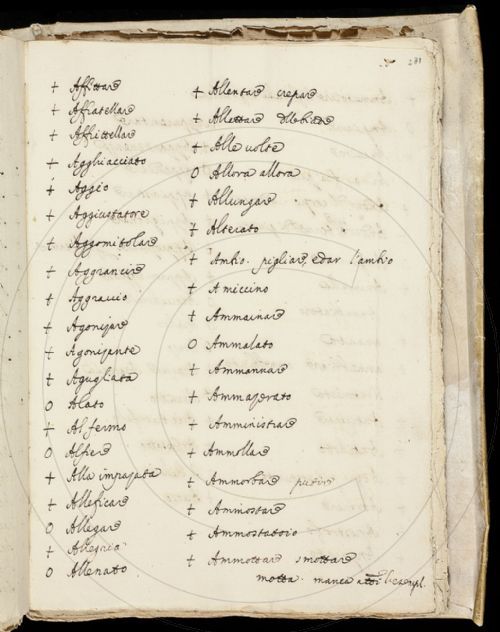 281
+ Affittare
+ Affratellare
+ Affrittellare
+ Agghiacciato
+ Aggio
+ Aggiustatore
+ Aggomitolare
+ Aggrancire
+ Aggravio
+ Agonizare
+ Agonizante
+ Agugliata
O Alato
+ Al fermo
O Alfiere
+ Alla impazata
+ Alleficare
O Allegare
+ Allegria
O Allenato
+ Allentare crepare
+ Allettare
+ Alle volte
O Allora allora
+ Allungare
+ Alterato
+ Ambio. pigliare, e dar l'ambio
+ A miccino
+ Ammainare
O Ammalato
+ Ammannare
+ Ammazerato
+ Amministrare
+ Ammollare
+ Ammorbare putire
+ Ammostare
+ Ammostatoio
+ Ammottare smottare
motta. manca